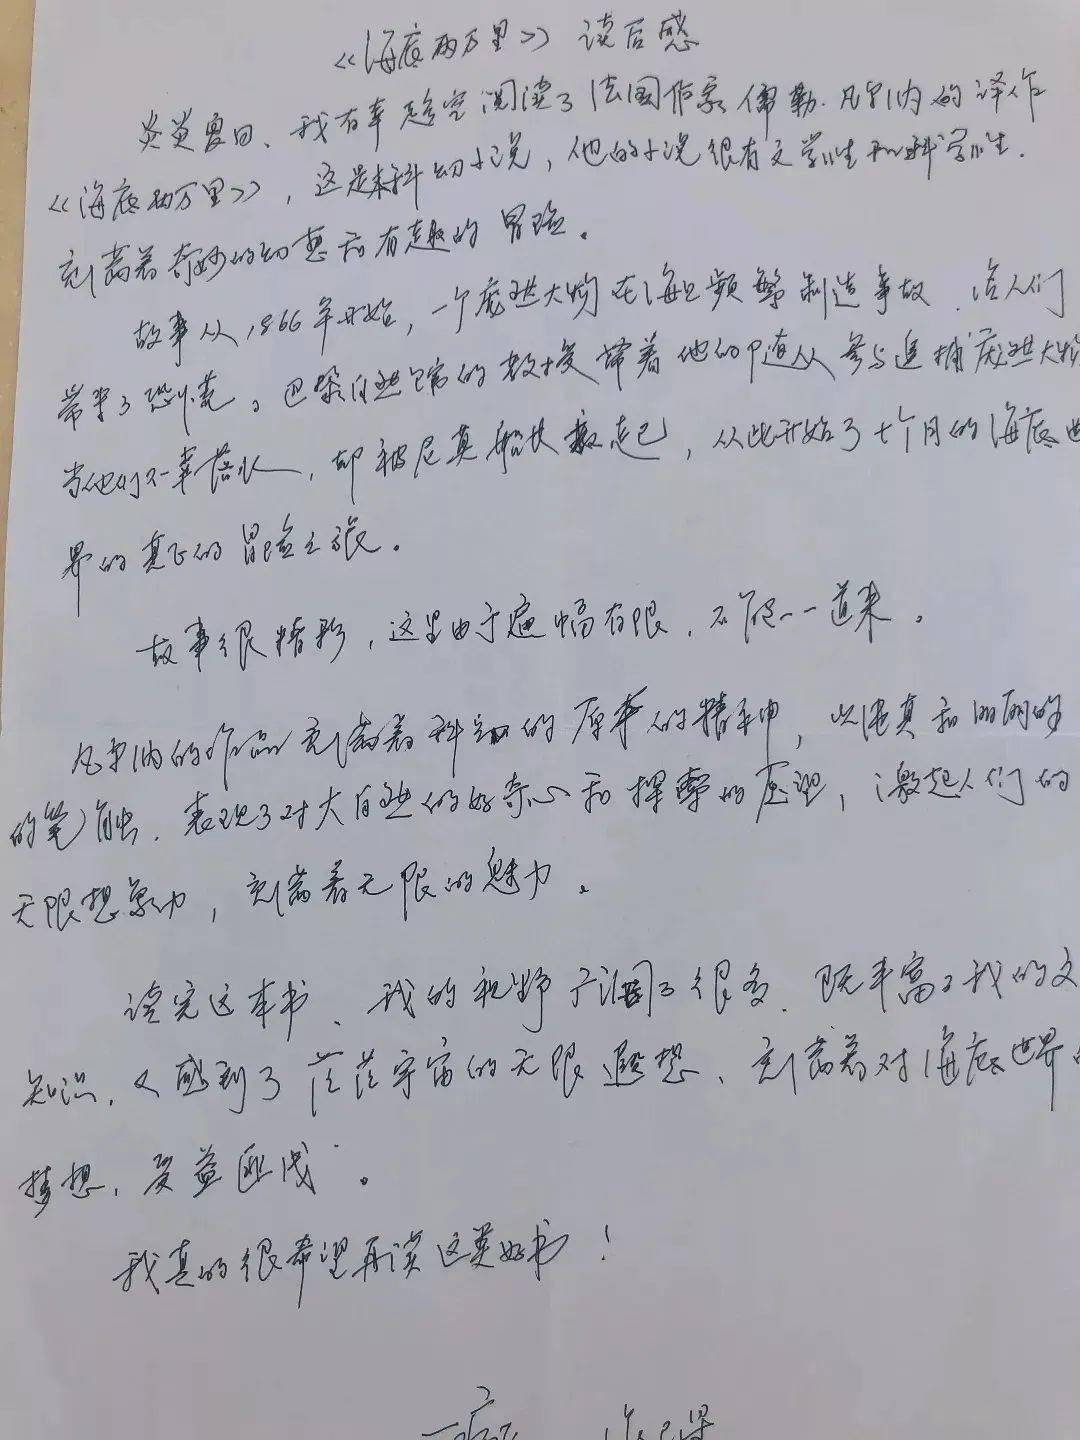 《海底两万里》读后感
炎炎夏日、我有幸 阅读了法国作家儒勒.凡尔纳的译作
《海底两万里》，这是本科幻小说，他的小说很有文学性和科学性.
充满着奇妙的幻想和有趣的冒险。
故事从1866年开始，一个庞然大物在海上频繁制造事故.给人们
带来了恐慌。巴黎自然馆的教授带着他的随从参与追捕庞然大物
当他们不幸落水，却被尼莫船长救起，从此开始了十个月的海底世
界的真正的冒险之旅。
故事很精彩，这里由于篇幅有限.不能一一道来.
凡尔纳的作品充满着科幻的 人的精神，以逼真和明丽的
的笔触.表现了对大自然的好奇心和探索的愿望，激起人们的
无限想象力，充满着无限的魅力。
读完这本书、我的视野广阔了很多.既丰富了我的文
知识.又感到了茫茫宇宙的无限遐想、充满着对海底世界的
梦想.受益匪浅。
我真的很希望再读这类好书！